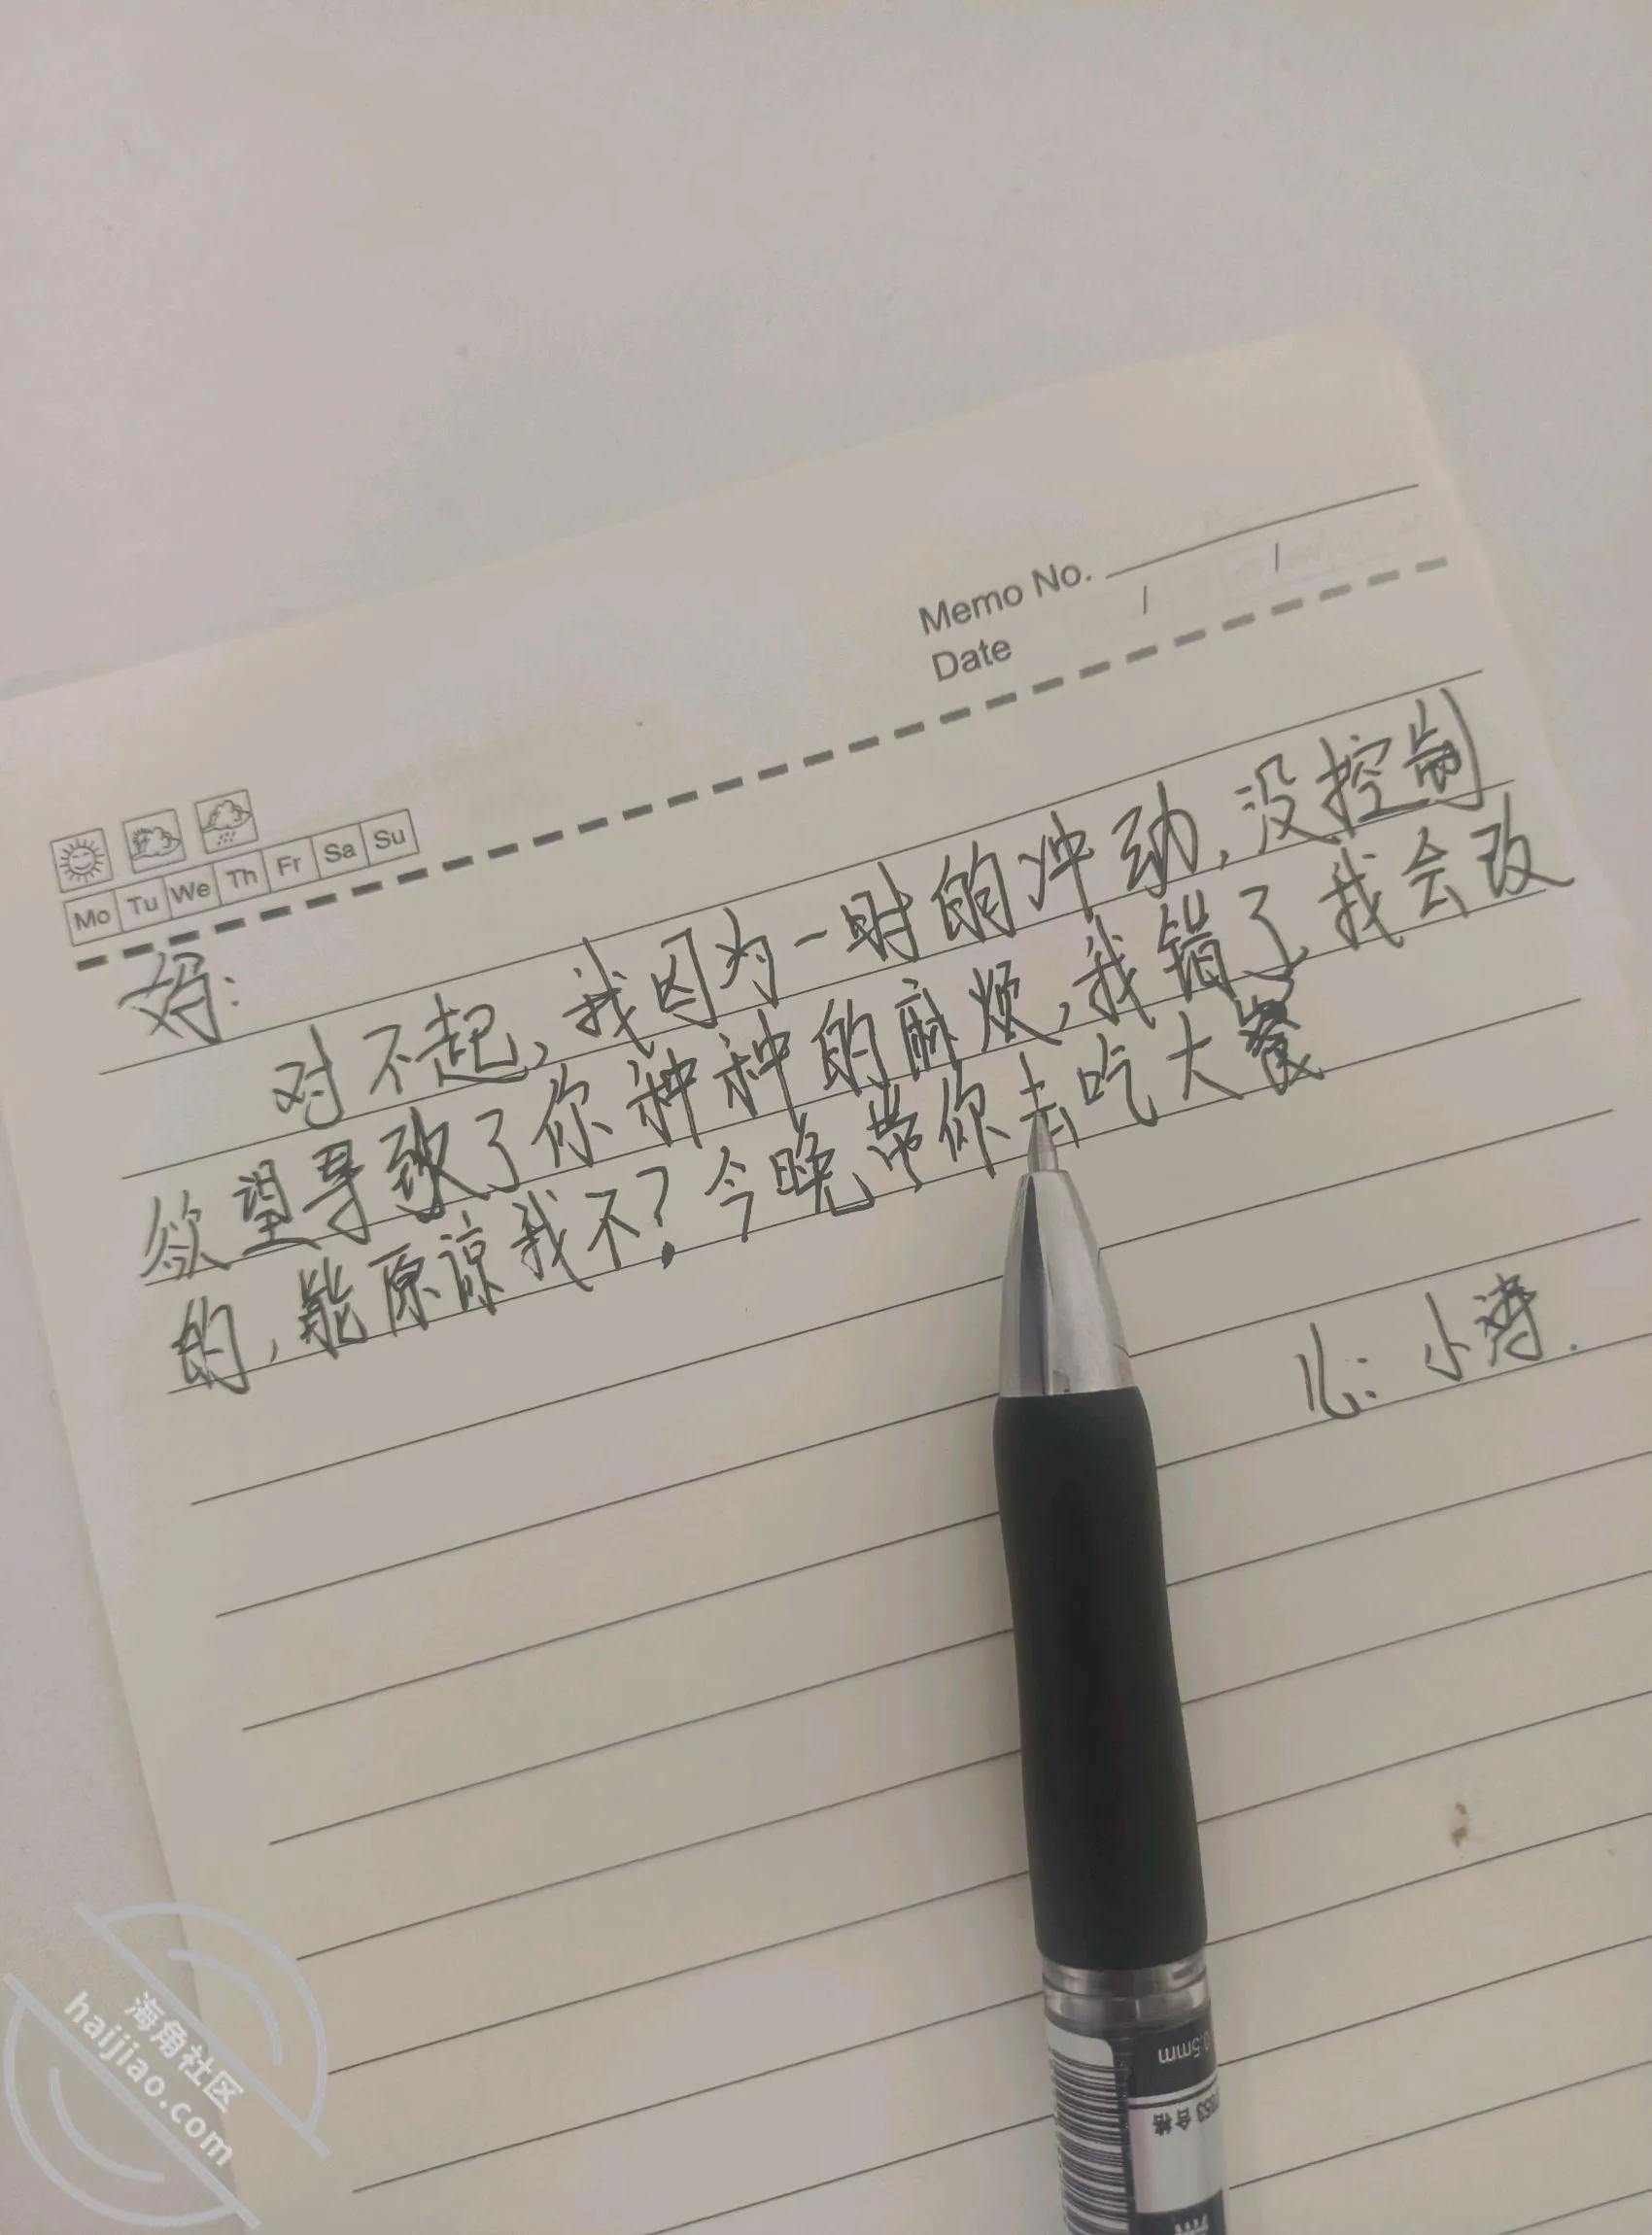 Memo No.
Date / /
Mo Tu We Th Fr Sa Su
妈:
对不起,我因为一时的冲动,没控制
欲望导致了你种种的麻烦,我错了,我会改
的,能原谅我不?今晚带你去吃大餐
儿:小涛.
0.5mm
合格
海角社区
haijiao.com